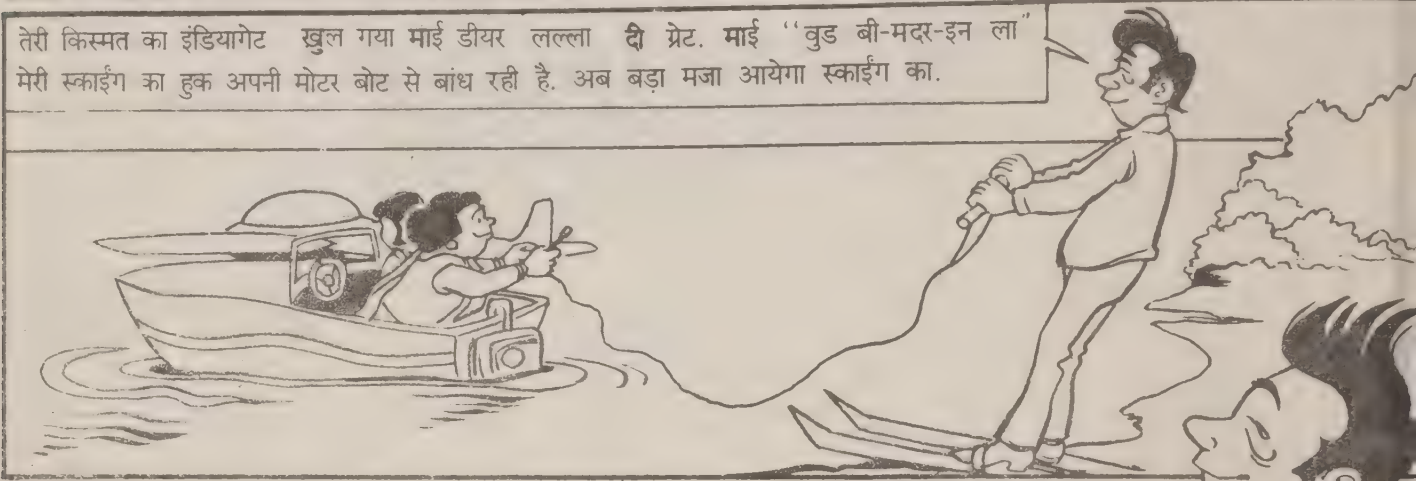 तेरी किस्मत का इंडियागेट खुल गया माई डीयर लल्ला दी ग्रेट. माई "वुड बी-मदर-इन ला"
मेरी स्काईंग का हुक अपनी मोटर बोट से बांध रही है. अब बड़ा मजा आयेगा स्काईंग का.